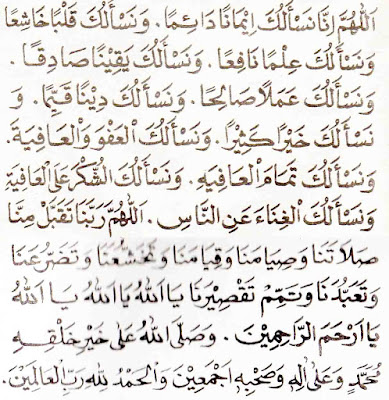 اَللّٰهُمَّ اِنَّا نَسْأَلُكَ اِيْمَانًا دَائِمًا. وَنَسْأَلُكَ قَلْبًا خَاشِعًا
وَنَسْأَلُكَ عِلْمًا نَافِعًا. وَنَسْأَلُكَ يَقِيْنًا صَادِقًا.
وَنَسْأَلُكَ عَمَلًا صَالِحًا. وَنَسْأَلُكَ دِيْنًا قَيِّمًا. وَ
نَسْأَلُكَ خَيْرًا كَثِيْرًا. وَنَسْأَلُكَ الْعَفْوَ وَالْعَافِيَةَ.
وَنَسْأَلُكَ تَمَامَ الْعَافِيَهِ. وَنَسْأَلُكَ الشُّكْرَ عَلَى الْعَافِيَةِ
وَنَسْأَلُكَ الْغِنَاءَ عَنِ النَّاسِ. اَللّٰهُمَّ رَبَّنَا تَقَبَّلْ مِنَّا
صَلَاتَنَا وَصِيَامَنَا وَقِيَامَنَا وَتَخَشُّعَنَا وَتَضَرُّعَنَا
وَتَعَبُّدَنَا وَتَمِّمْ تَقْصِيْرَنَا يَا اَللهُ يَا اَللهُ يَا اَللهُ
يَا اَرْحَمَ الرَّاحِمِيْنَ. وَصَلَّى اللهُ عَلَى خَيْرِ خَلْقِهِ
مُحَمَّدٍ وَعَلَى اٰلِهِ وَصَحْبِهِ اَجْمَعِيْنَ وَالْحَمْدُ لِلهِ رَبِّ الْعَالَمِيْنَ.